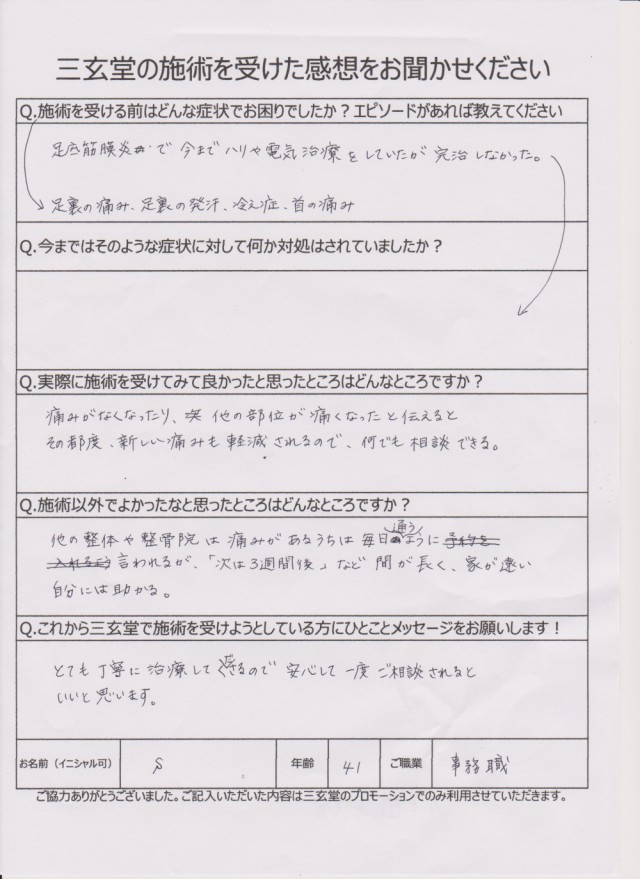 三玄堂の施術を受けた感想をお聞かせください
Q.施術を受ける前はどんな症状でお困りでしたか？エピソードがあれば教えてください
足底筋膜炎で今までハリや電気治療をしていたが完治しなかった。
足裏の痛み、足裏の発汗、冷え症、首の痛み
Q.今まではそのような症状に対して何か対処はされていましたか？
Q.実際に施術を受けてみて良かったと思ったところはどんなところですか？
痛みがなくなったり、他の部位が痛くなったと伝えると
その都度、新しい痛みも軽減されるので、何でも相談できる。
Q.施術以外でよかったなと思ったところはどんなところですか？
他の整体や整骨院は痛みがあるうちは毎日通うように予約を
入れるよう言われるが、「次は3週間後」など間が長く、家が遠い
自分には助かる。
Q.これから三玄堂で施術を受けようとしている方にひとことメッセージをお願いします！
とても丁寧に治療してくださるので安心して一度ご相談されると
いいと思います。
お名前（イニシャル可） S 年齢 41 ご職業 事務職
ご協力ありがとうございました。ご記入いただいた内容は三玄堂のプロモーションでのみ利用させていただきます。